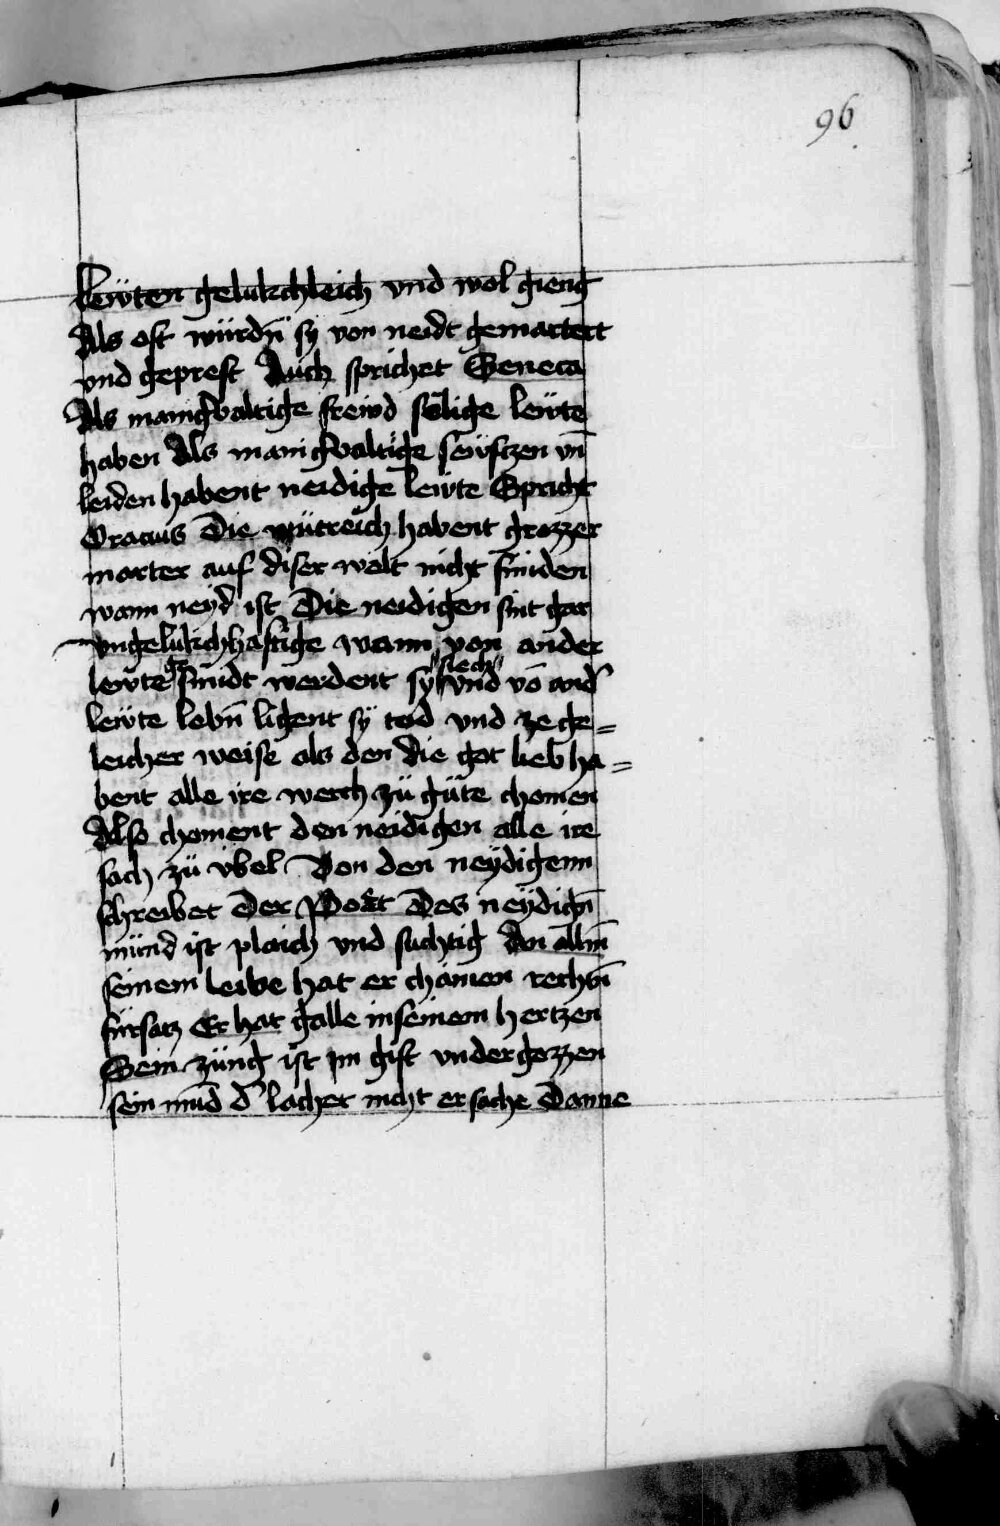 96
lewten geluckchleich vnd wol gieng
Als oft würdn̄ sy von neidt gemartert
vnd geprest Auch sprichet Seneca
Als manigvaltige frewd sälige lewte
haben Als manigvaltige sewftzen vn̄
leiden habent neidige lewte Spricht
Oracius Die wütreich habent grozzer
marter auf diser welt nicht funden
wann neyd ist Die neidigen sint gar
vngelukchhaftige wann von ander
lewte gesundt werdent sy siech vnd vō and̕
lewte lebn̄ ligent sy tod vnd ze ge=
leicher weise als den die got lieb ha=
bent alle ire werch zü güte chomen
Also choment den neidigen alle ire
sach zü vbel Von den neydigenn
schreibet Der Poet Des neydign̄
münd ist plaich vnd suchtig An alln̄
seinem leibe hat er chainen rechtn̄
fürsatz Er hat galle in seinem hertzen
Sein züng ist im gift vndergozzen
sein mūd d̕ lachet nicht er sache Danne